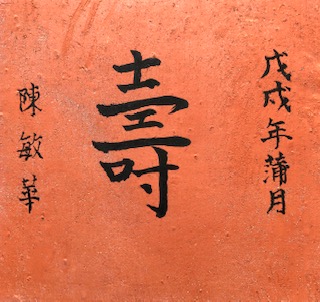 戊戌年蒲月
壽
陳敏華